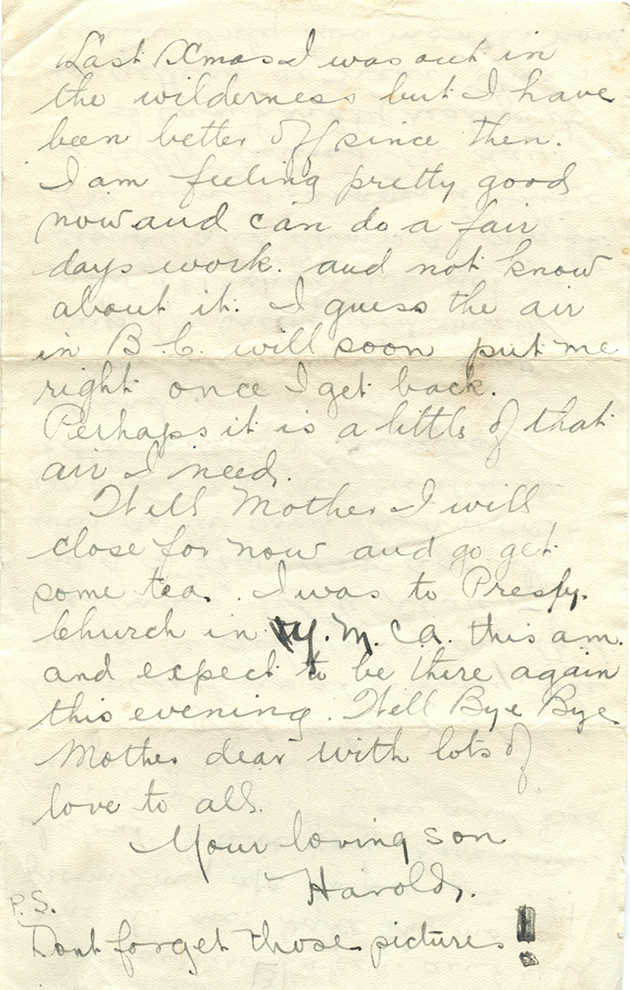 Last Xmas I was out in
the wilderness but I have
been better off since then.
I am feeling pretty good
now and can do a fair
days work. and not know
about it. I guess the air
in B.C. will soon put me
right once I get back.
Perhaps it is a little of that
air I need.
Well Mother I will
close for now and go get
some tea. I was to Presby.
Church in Y.M.CA. this am.
and expect to be there again
this evening. Well Bye Bye
Mother dear with lots of
love to all.
Your loving son
Harold.
P.S.
Dont forget those pictures!